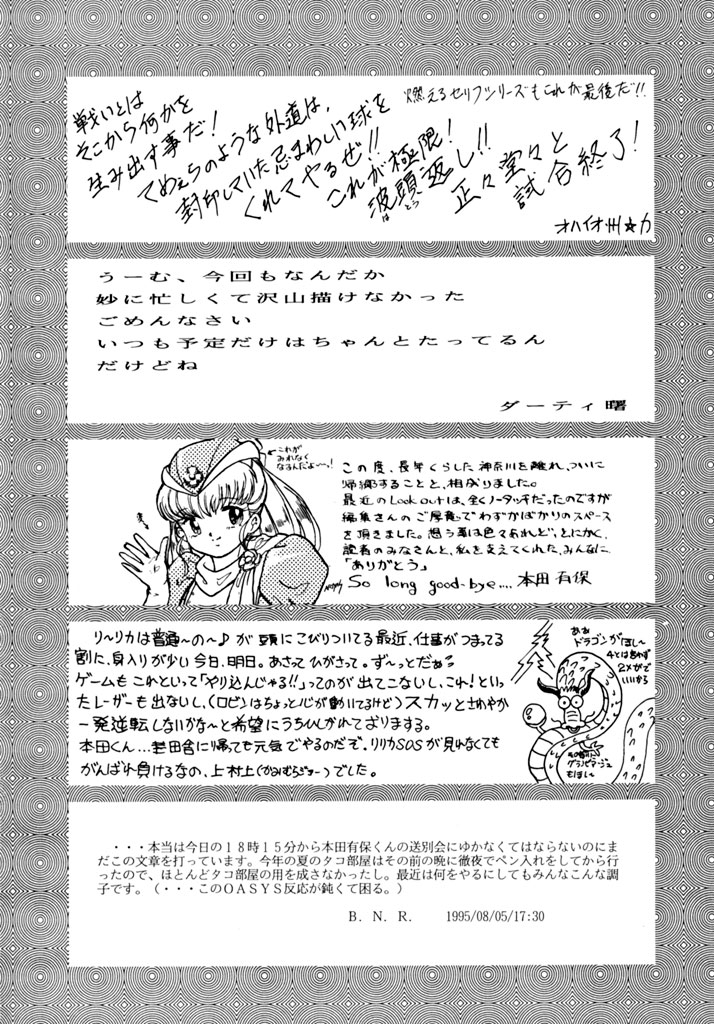 燃えるセリフシリーズもこれが最後だ!!
戦いとは
そこから何かを
生み出す事だ!
てめぇらのような外道は、
封印していた忌まわしい球を
くれてやるぜ!!
これが極限!
波頭返し!!
はとう
正々堂々と
試合終了!
オハイオ州☆力
うーむ、今回もなんだか
妙に忙しくて沢山描けなかった
ごめんなさい
いつも予定だけはちゃんとたってるん
だけどね
ダーティ曙
←これが
みれなく
なるんだよ〜!
この度、長年くらした神奈川を離れ、ついに
帰郷することと、相成りました。
最近のLook outは、全くノータッチだったのですが
編集さんのご厚意でわずかばかりのスペース
を頂きました。想う事は色々あれど、とにかく、
読者のみなさんと、私を支えてくれた、みんなに
「ありがとう」
So long good-bye.... 本田有保
リ〜リカは普通〜の〜♪が頭にこびりついてる最近、仕事がつまってる
割に、身入りが少い今日、明日。あさってひがさって。ず〜っとだぁ
ゲームもこれといって「やり込んじゃる!!」ってのが出てこないし、これ!といっ
たレーザーも出ないし、(ロビンはちょっと心が動いてるけど)スカッとさわやか
一発逆転しないかな〜と希望にうちひしがれております。
本田くん…若田舎に帰っても元気でやるのだぞ、リリカSOSが見れなくても
がんばれ負けるなの、上村上(かみむらじょー)でした。
あぁ
ドラゴンがほし〜
4とは言わず
2メガで
いいから
グラパマージュ
もほし〜
・・・本当は今日の18時15分から本田有保くんの送別会にゆかなくてはならないのにま
だこの文章を打っています。今年の夏のタコ部屋はその前の晩に徹夜でペン入れをしてから行
ったので、ほとんどタコ部屋の用を成さなかったし。最近は何をやるにしてもみんなこんな調
子です。(・・・このOASYS反応が鈍くて困る。)
B. N. R. 1995/08/05/17:30